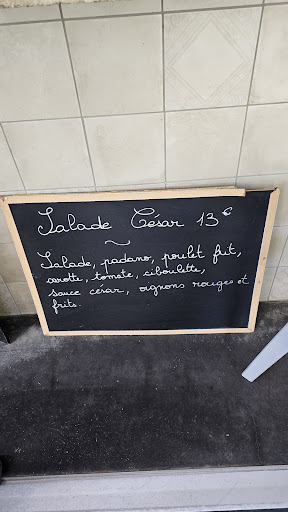 Salade César 13€
~
Salade, padano, poulet frit,
carotte, tomate, ciboulette,
sauce césar, oignons rouges et
frits.